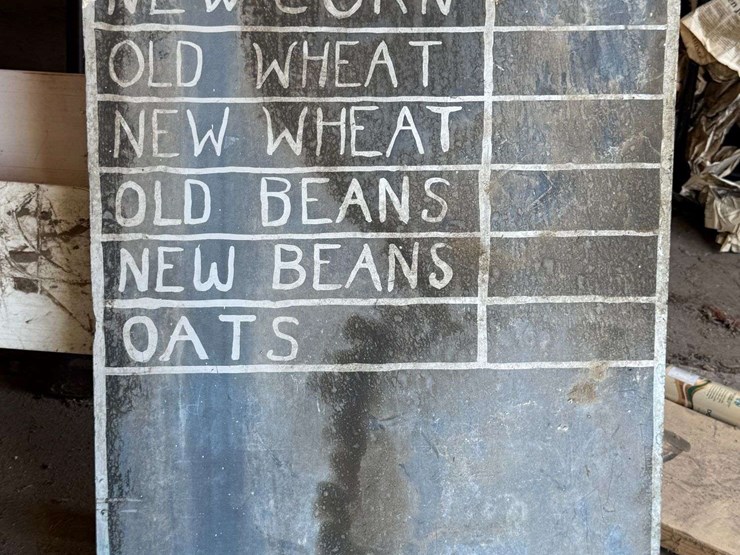 NEW CORN
OLD WHEAT
NEW WHEAT
OLD BEANS
NEW BEANS
OATS